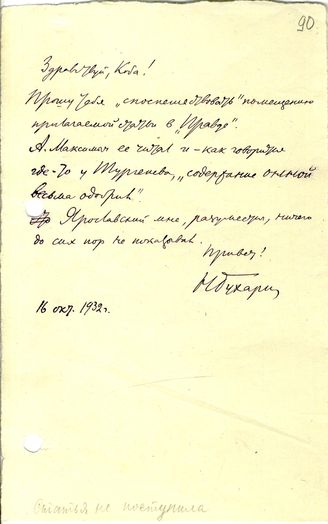 90
Здравствуй, Коба!
Прошу тебя „споспешествовать" помещению
прилагаемой статьи в „Правде".
А. Максимыч ее читал и – как говорится
где-то у Тургенева, „содержание оной
весьма одобрил".
Ярославский мне, разумеется, ничего
до сих пор не показывал.
Привет!
Н Бухарин
16 окт. 1932 г.
Статья не поступила